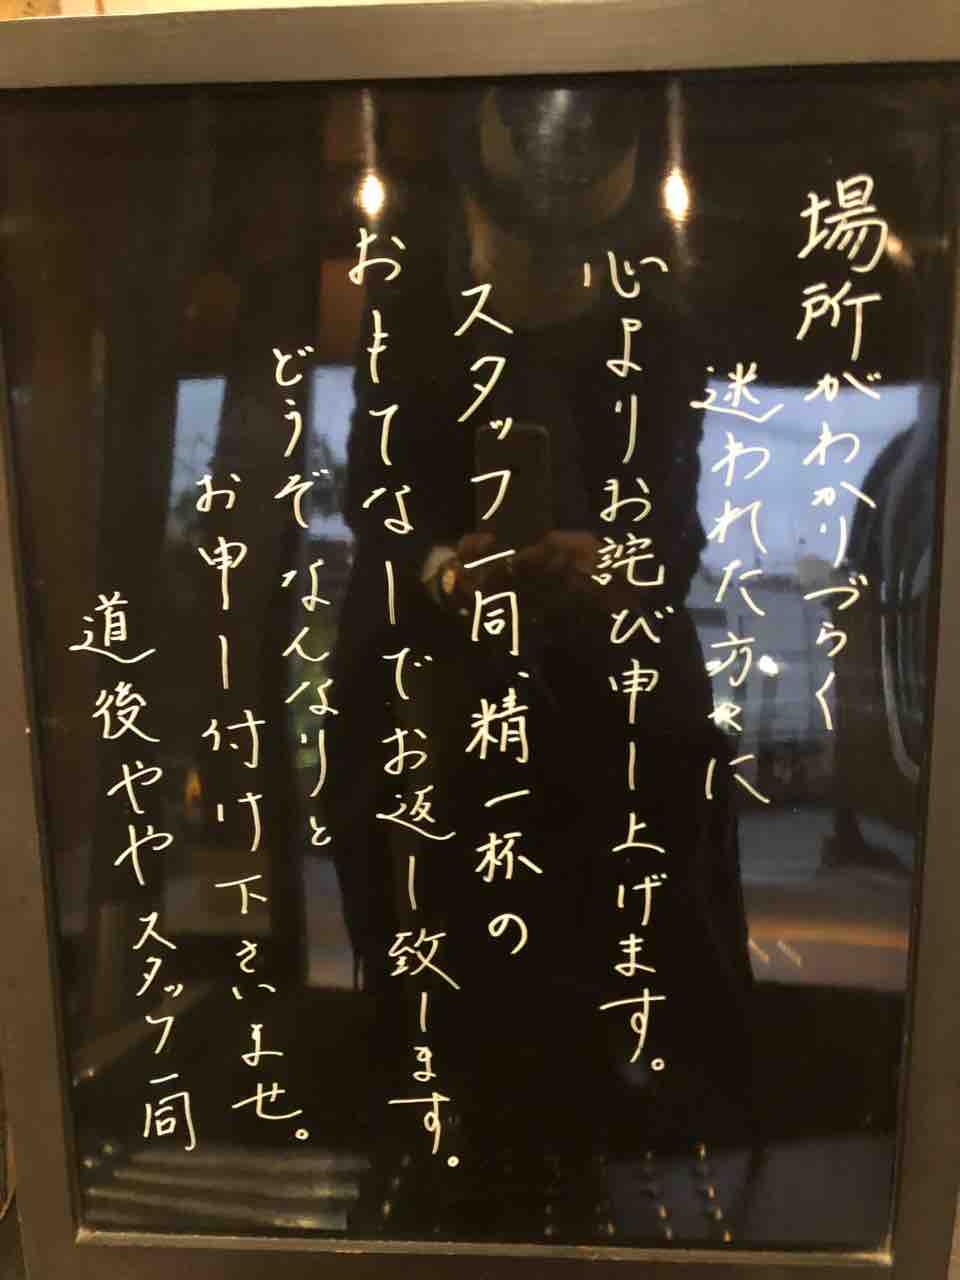 場所がわかりづらく
迷われた方々に
心よりお詫び申し上げます。
スタッフ一同、精一杯の
おもてなしでお返し致します。
どうぞなんなりと
お申し付け下さいませ。
道後ややスタッフ一同